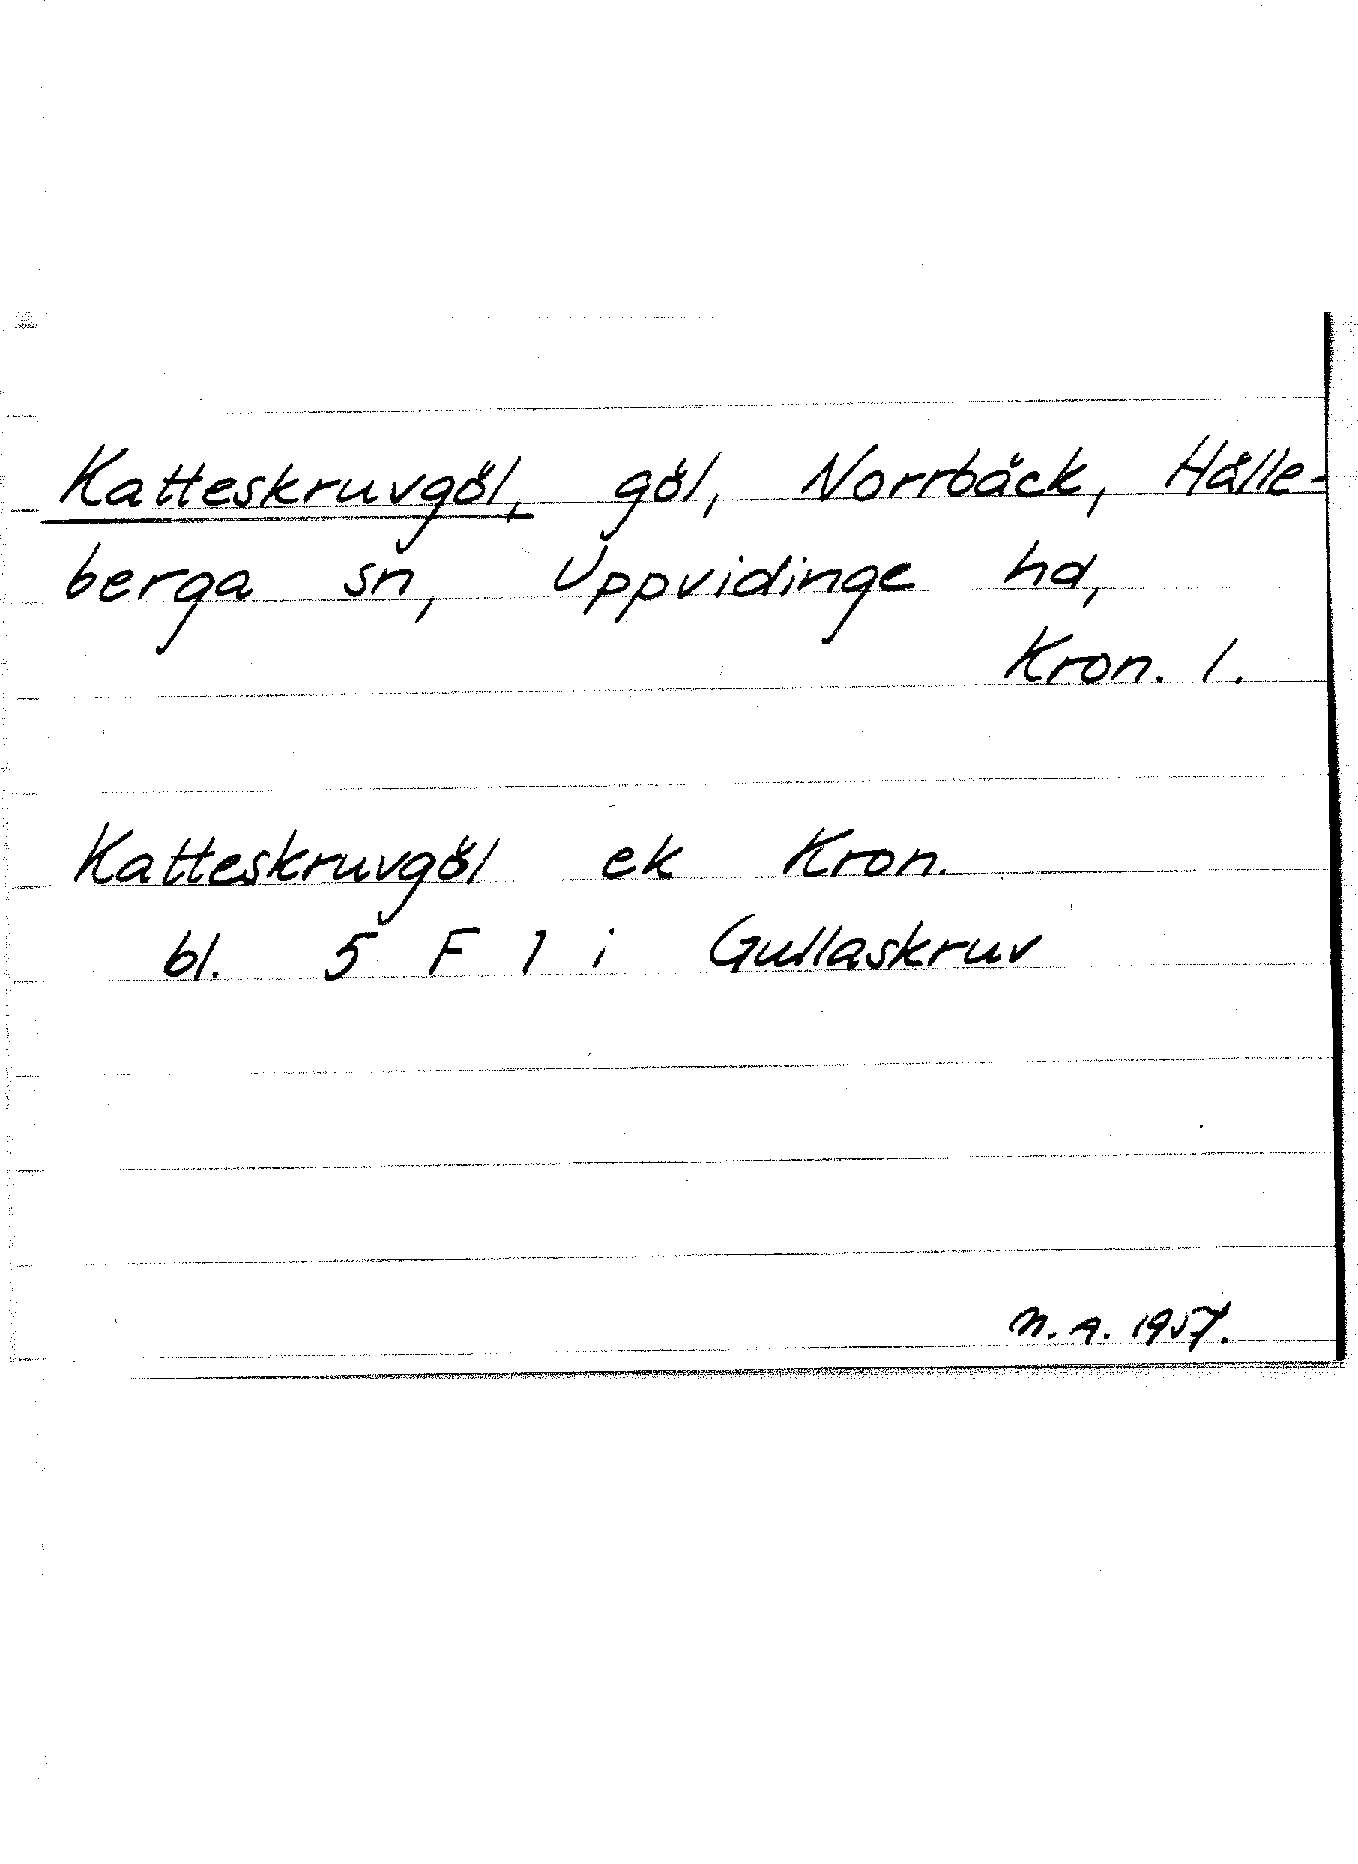 Katteskruvgöl, göl, Norrbäck, Hälle-
berga sn, Uppvidinge hd,
Kron. l.
Katteskruvgöl ek Kron.
bl. 5 F 1 i Gullaskruv
N. A. 1957.